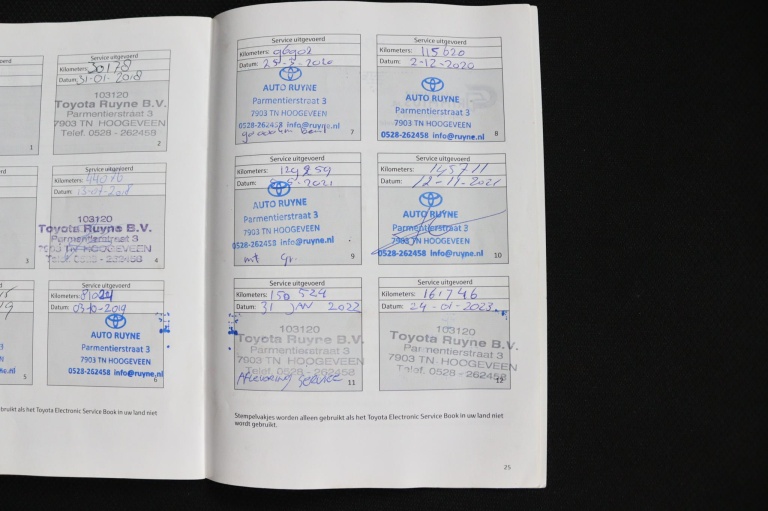 Datum:
1
Service uitgevoerd
Kilometers: 30178
Datum: 31-01-2018
103120
Toyota Ruyne B.V.
Parmentierstraat 3
7903 TN HOOGEVEEN
Telef. 0528 - 262458
2
3
Service uitgevoerd
Kilometers: 44070
Datum: 13-07-2018
103120
Toyota Ruyne B.V.
Parmentierstraat 3
7903 TN HOOGEVEEN
Telef. 0528 - 262458
4
5
Service uitgevoerd
Kilometers:
Datum: 03-10-2019
AUTO RUYNE
Parmentierstraat 3
7903 TN HOOGEVEEN
0528-262458 info@ruyne.nl
6
bruikt als het Toyota Electronic Service Book in uw land niet
Service uitgevoerd
Kilometers: 96902
Datum:
AUTO RUYNE
Parmentierstraat 3
7903 TN HOOGEVEEN
0528-262458 info@ruyne.nl
7
Service uitgevoerd
Kilometers: 115620
Datum: 2-12-2020
AUTO RUYNE
Parmentierstraat 3
7903 TN HOOGEVEEN
0528-262458 info@ruyne.nl
8
Service uitgevoerd
Kilometers: 129259
Datum:
AUTO RUYNE
Parmentierstraat 3
7903 TN HOOGEVEEN
0528-262458 info@ruyne.nl
9
Service uitgevoerd
Kilometers: 145711
Datum: 12-11-2021
AUTO RUYNE
Parmentierstraat 3
7903 TN HOOGEVEEN
0528-262458 info@ruyne.nl
10
Service uitgevoerd
Kilometers: 150 524
Datum: 31 JAN 2022
103120
Toyota Ruyne B.V.
Parmentierstraat 3
7903 TN HOOGEVEEN
Telef. 0528 - 262458
Aflevering Service
11
Service uitgevoerd
Kilometers: 161746
Datum: 24-01-2023
103120
Toyota Ruyne B.V.
Parmentierstraat 3
7903 TN HOOGEVEEN
Telef. 0528 - 262458
12
Stempelvakjes worden alleen gebruikt als het Toyota Electronic Service Book in uw land niet
wordt gebruikt.
25